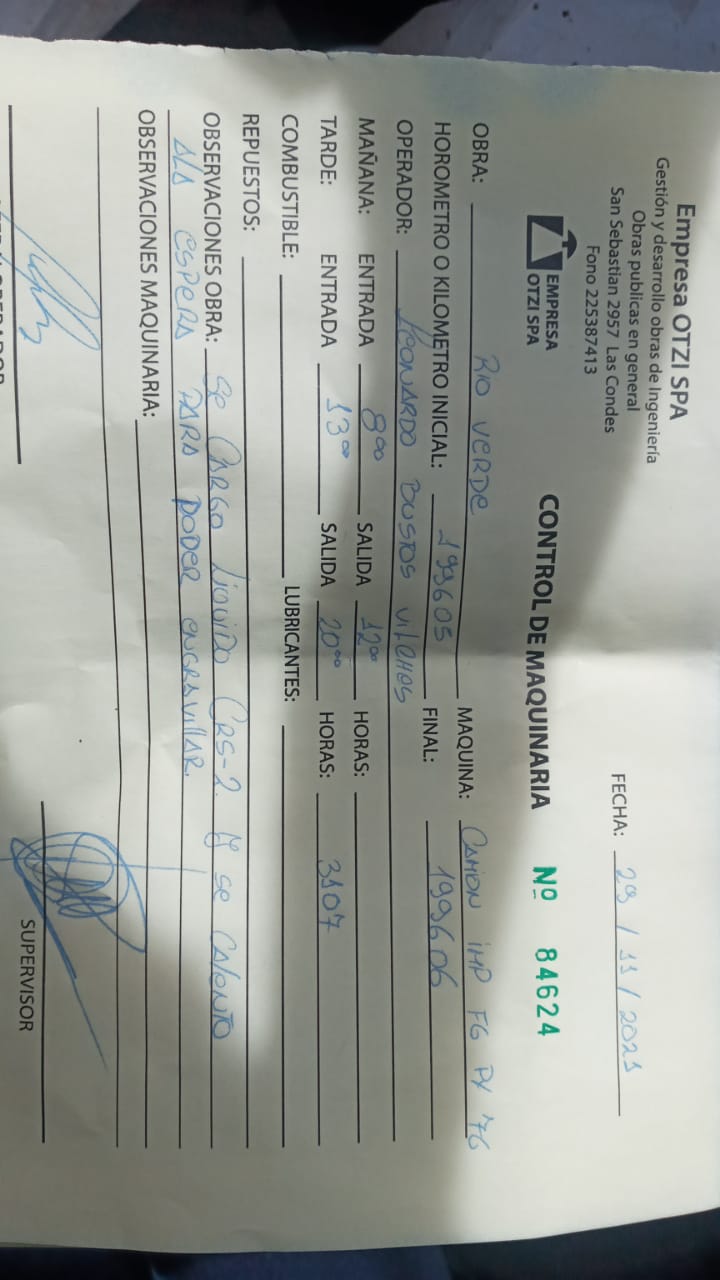 Empresa OTZI SPA
Gestión y desarrollo obras de Ingeniería
Obras publicas en general
San Sebastian 2957 Las Condes
Fono 225387413
FECHA: 29 / 11 / 2021
EMPRESA
OTZI SPA
CONTROL DE MAQUINARIA Nº 84624
OBRA: RIO VERDE MAQUINA: CAMION IMP FG PY 76
HOROMETRO O KILOMETRO INICIAL: 199605 FINAL: 199606
OPERADOR: LEONARDO BUSTOS VILCHES
MAÑANA: ENTRADA 8:00 SALIDA 12:00 HORAS:
TARDE: ENTRADA 13:00 SALIDA 20:00 HORAS: 3107
COMBUSTIBLE: LUBRICANTES:
REPUESTOS:
OBSERVACIONES OBRA: SE CARGO LIQUIDO CRS-2. Y SE CALENTO
ALA ESPERA PARA PODER ENGRAVILLAR.
OBSERVACIONES MAQUINARIA:
SUPERVISOR